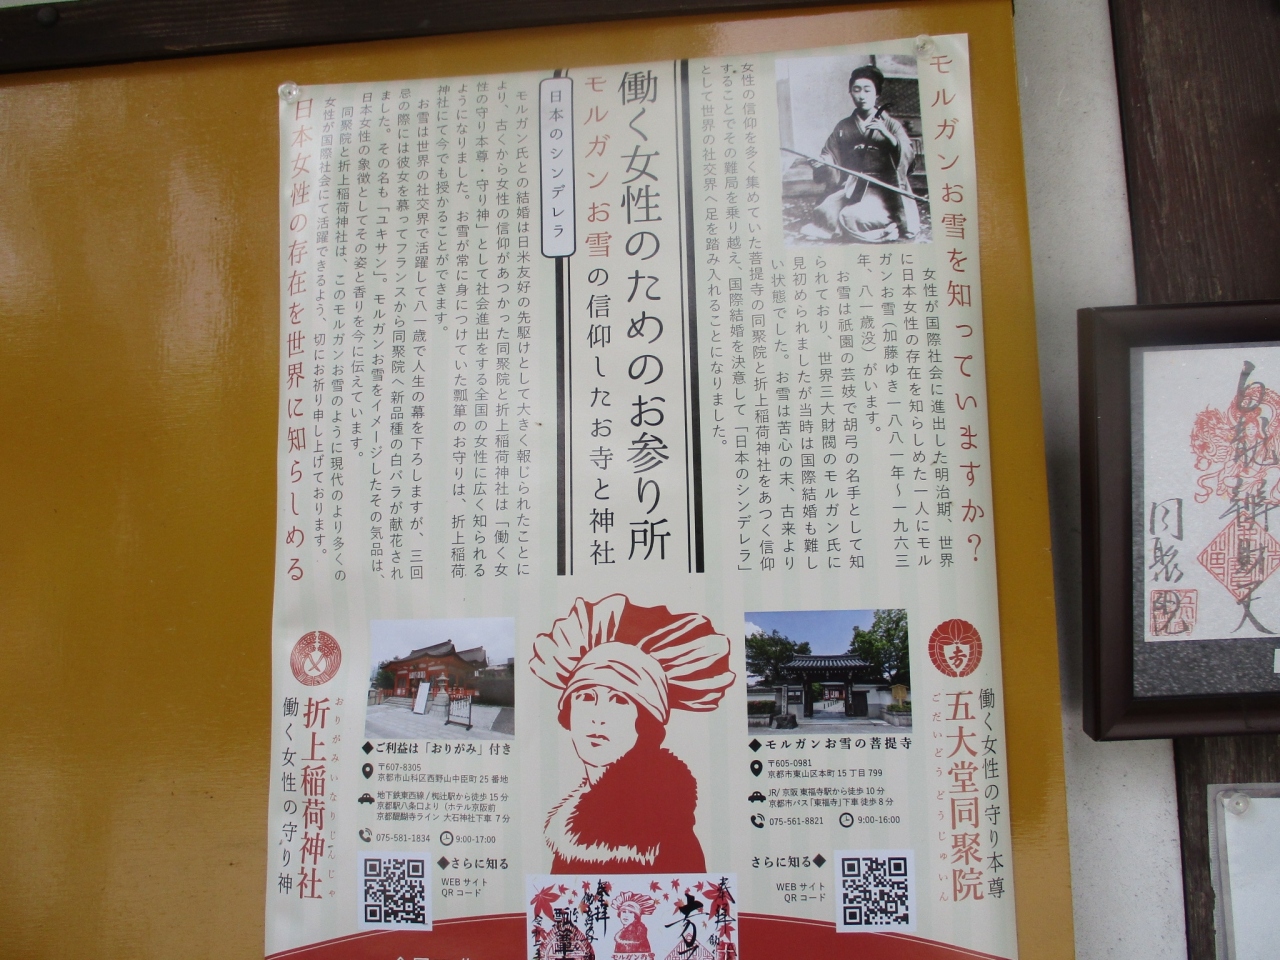 モルガンお雪を知っていますか?
女性が国際社会に進出した明治期、世界
に日本女性の存在を知らしめた一人にモル
ガンお雪(加藤ゆき一八八一年〜一九六三
年、八一歳没)がいます。
お雪は祇園の芸妓で胡弓の名手として知
られており、世界三大財閥のモルガン氏に
見初められましたが当時は国際結婚も難し
い状態でした。お雪は苦心の末、古来より
女性の信仰を多く集めていた菩提寺の同聚院と折上稲荷神社をあつく信仰
することでその難局を乗り越え、国際結婚を決意して「日本のシンデレラ」
として世界の社交界へ足を踏み入れることになりました。
働く女性のためのお参り所
モルガンお雪の信仰したお寺と神社
日本のシンデレラ
モルガン氏との結婚は日米友好の先駆けとして大きく報じられたことに
より、古くから女性の信仰があつかった同聚院と折上稲荷神社は「働く女
性の守り本尊・守り神」として社会進出をする全国の女性に広く知られる
ようになりました。お雪が常に身につけていた瓢箪のお守りは、折上稲荷
神社にて今でも授かることができます。
お雪は世界の社交界で活躍して八一歳で人生の幕を下ろしますが、三回
忌の際には彼女を慕ってフランスから同聚院へ新品種の白バラが献花され
ました。その名も「ユキサン」。モルガンお雪をイメージしたその気品は、
日本女性の象徴としてその姿と香りを今に伝えています。
同聚院と折上稲荷神社は、このモルガンお雪のように現代のより多くの
女性が国際社会にて活躍できるよう、切にお祈り申し上げております。
日本女性の存在を世界に知らしめる
働く女性の守り本尊
五大堂同聚院
ごだいどうどうじゅいん
◆モルガンお雪の菩提寺
〒605-0981
京都市東山区本町 15 丁目 799
JR/京阪 東福寺駅から徒歩 10 分
京都市バス「東福寺」下車 徒歩 8 分
075-561-8821
9:00-16:00
さらに知る◆
WEB サイト
QR コード
おりがみいなりじんじゃ
折上稲荷神社
働く女性の守り神
◆ご利益は「おりがみ」付き
〒607-8305
京都市山科区西野山中臣町 25 番地
地下鉄東西線/椥辻駅から徒歩 15 分
京都駅八条口より(ホテル京阪前
京都醍醐寺ライン 大石神社下車 7 分
075-581-1834
9:00-17:00
◆さらに知る
WEB サイト
QR コード
奉拝
モルガンお雪
同聚院